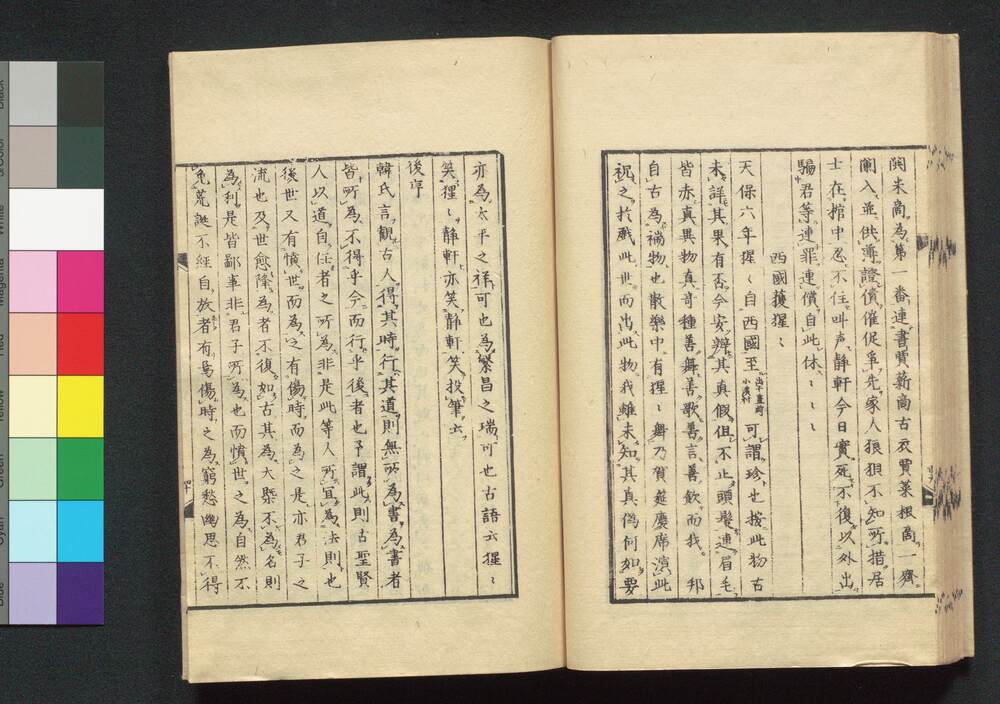 閧未商為第一番連書賈薪商古衣賈菜根商一齊
闌入並供簿證債催促爭先家人狼狽不知所措居
士在棺中忍不住叫声静軒今日實死不復以外出
騙君等連罪連債自此休〻〻〻
西國獲猩〻
天保六年猩〻自西國至 可謂珍也按此物古
未詳其果有否今安辨其真假但不止頭髪連眉毛
皆赤真異物真奇種善舞善歌善言善飲而我邦
自古為瑞物也散樂中有猩〻舞乃賀莚慶席演此
祝之於戲此世而出此物我雖未知其真偽何如要
亦為太平之祥可也為繁昌之瑞可也古語云猩〻
笑狸〻静軒亦笑静軒笑投筆云
後序
韓氏言觀古人得其時行其道則無所為書為書者
皆所為不得乎今而行乎後者也予謂此則古聖賢
人以道自任者之所為非是此等人所宜為法則也
後世又有憤世而為之有傷時而為之是亦君子之
流也及世愈降為者不復如古其為大槩不為名則
為利是皆鄙事非君子所為也而憤世之為自然不
免荒誕不經自放者有焉傷時之為窮愁幽思不得